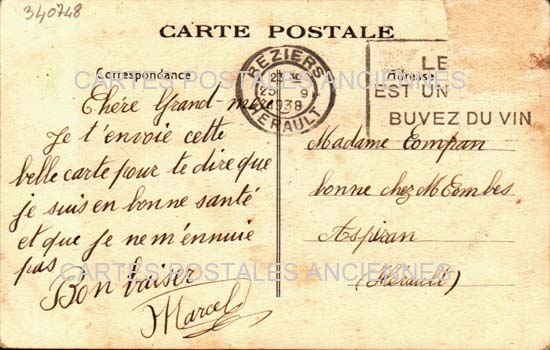 340748
CARTE POSTALE
BEZIERS
25 9
1938
HERAULT
LE
EST UN
BUVEZ DU VIN
Correspondance
Adresse
CARTES POSTALES ANCIENNES
Chère Grand-mère
Je t'envoie cette
belle carte pour te dire que
je suis en bonne santé
et que je ne m'ennuie
pas
Bon baiser
Marcel
Madame Compan
bonne chez M Combes
Aspiran
(Hérault)
CARTES POSTALES ANCIENNES